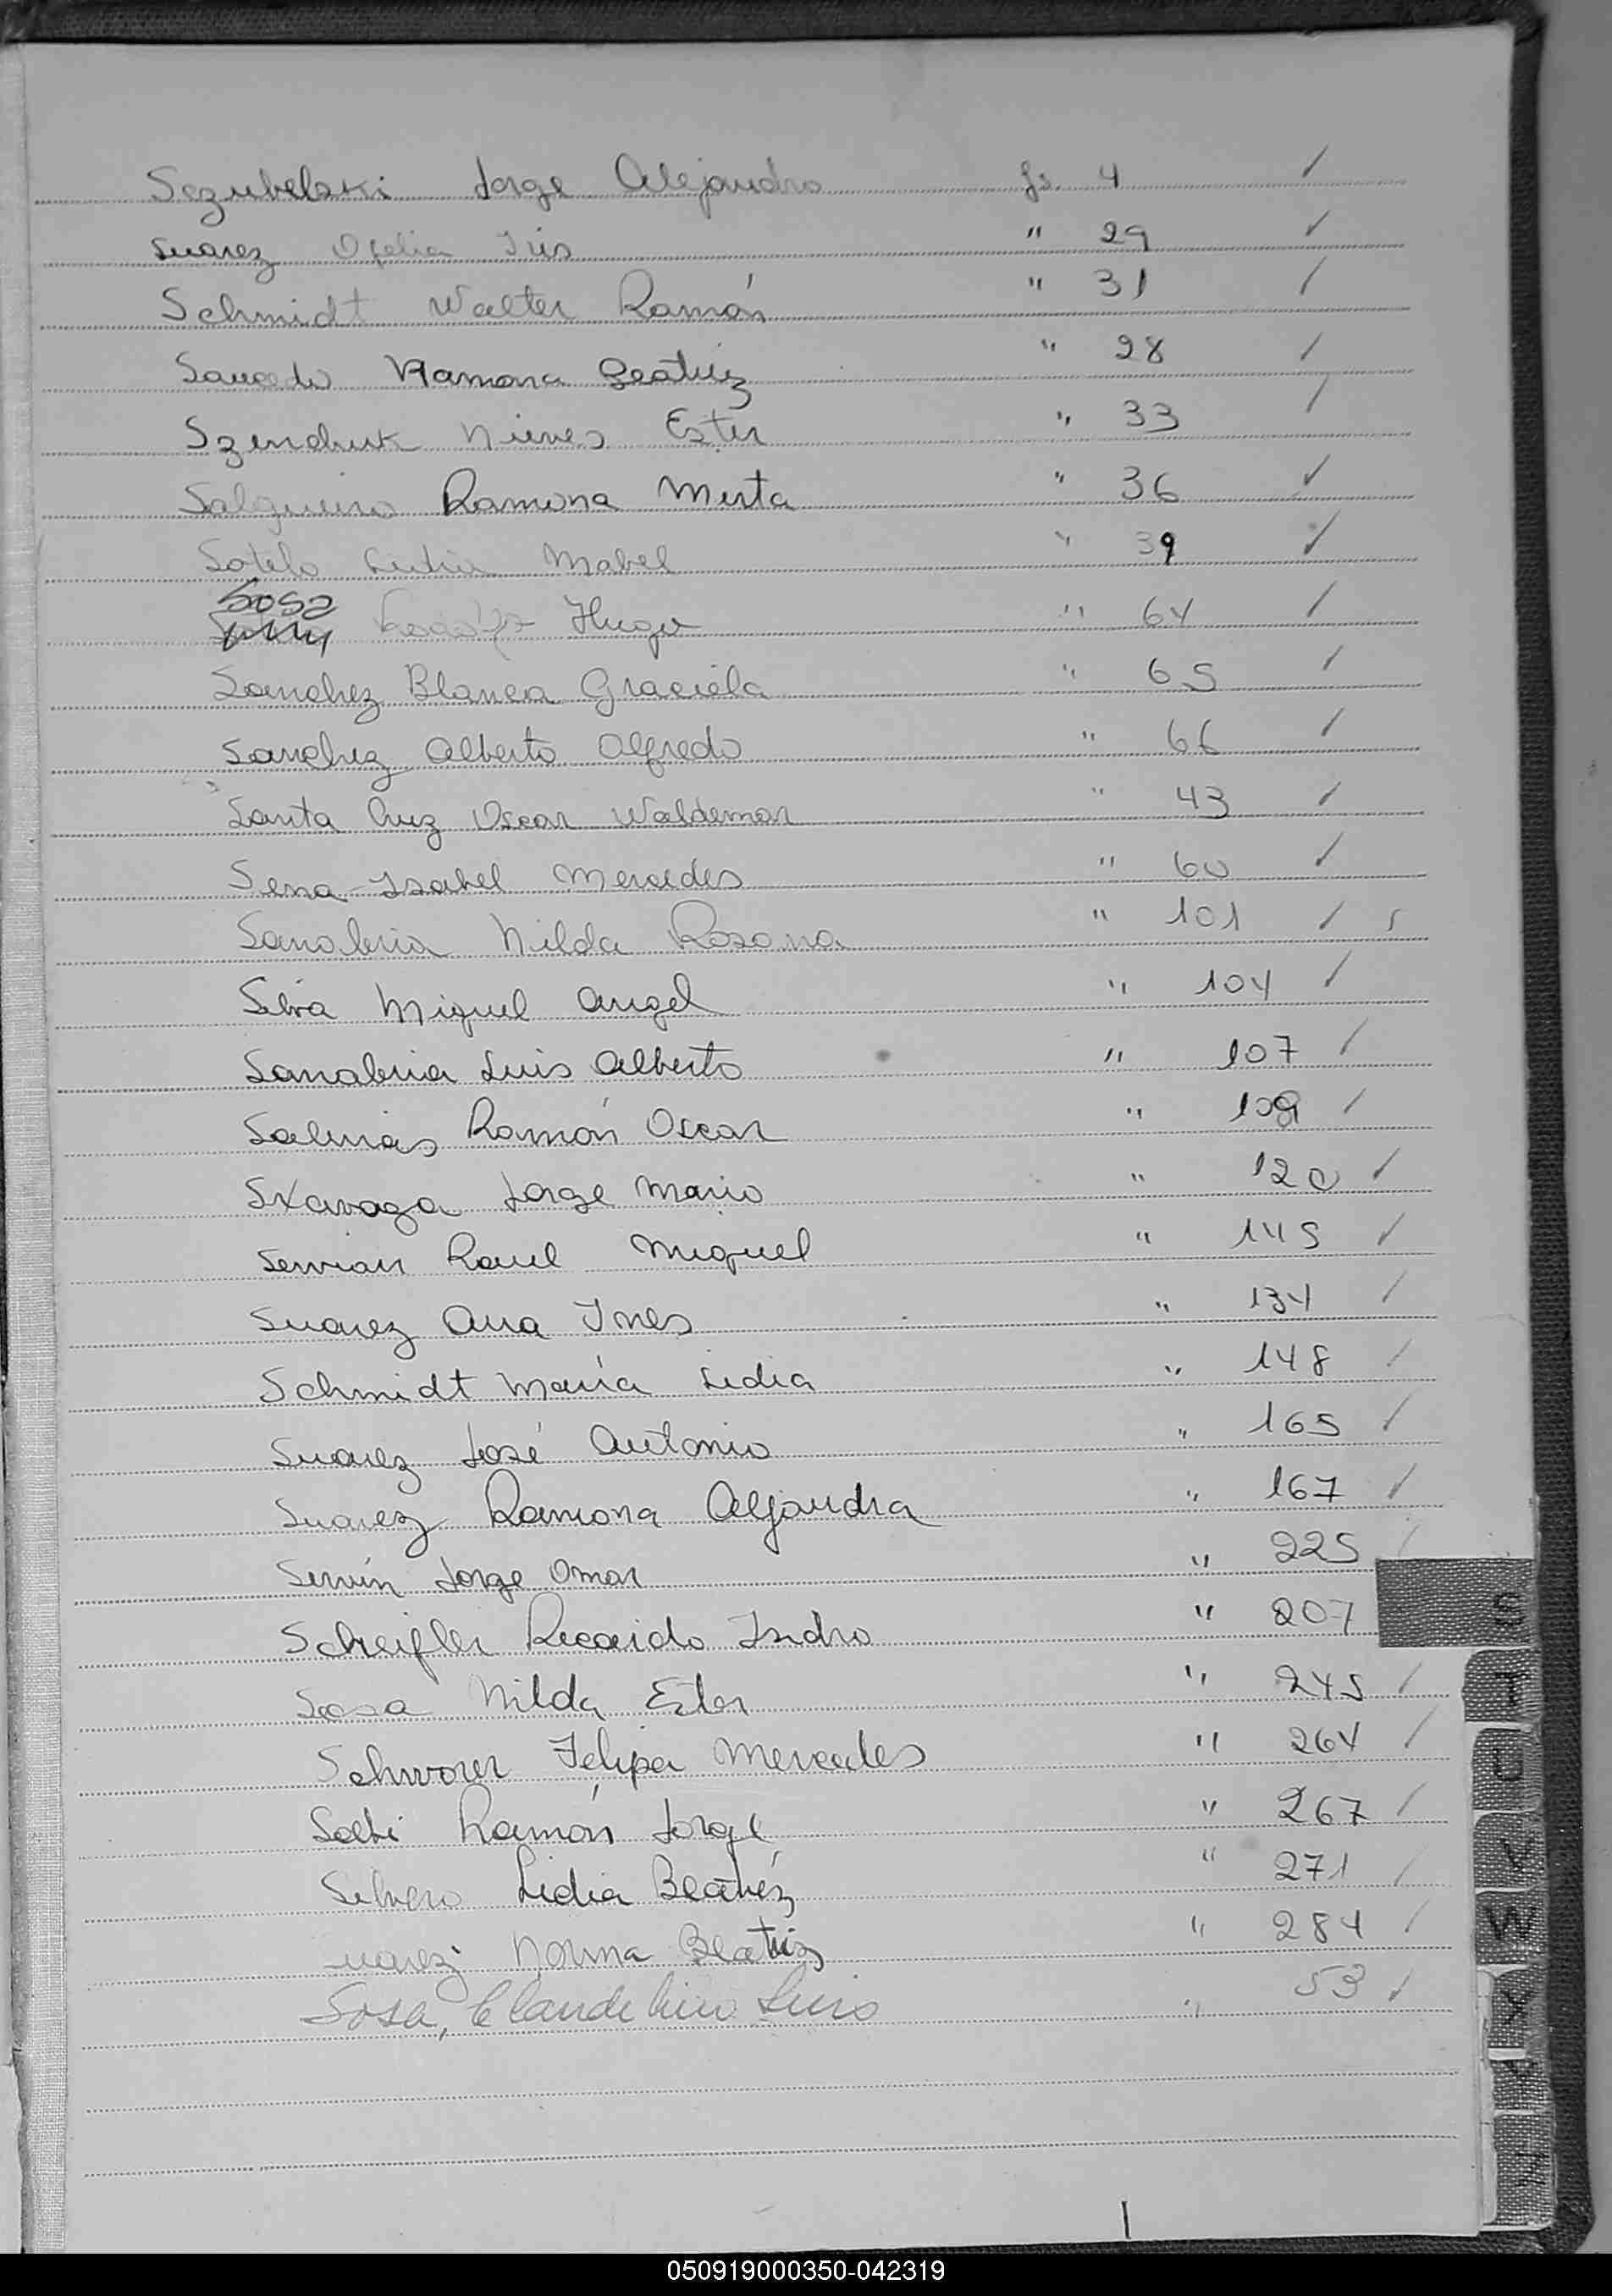 Sezubelski Jorge Alejandro fs. 4 ✓
Suarez Ofelia Iris " 29 ✓
Schmidt Walter Ramón " 31 ✓
Saucedo Ramona Beatriz " 28 ✓
Szenchuk Nieves Ester " 33 ✓
Salgueiro Ramona Mirta " 36 ✓
Sotelo Lidia Mabel " 39 ✓
Sosa Hugo " 64 ✓
Sanchez Blanca Graciela " 65 ✓
Sanchez Alberto Alfredo " 66 ✓
Santa Cruz Oscar Waldemar " 43 ✓
Sena Isabel Mercedes " 60 ✓
Sanabria Nilda Rosana " 101 ✓
Silva Miguel Angel " 104 ✓
Sanabria Luis Alberto " 107 ✓
Salinas Ramón Oscar " 109 ✓
Skavaga Jorge Mario " 120 ✓
Servian Raul Miguel " 145 ✓
Suarez Ana Ines " 134 ✓
Schmidt María Lidia " 148 ✓
Suarez José Antonio " 165 ✓
Suarez Ramona Alejandra " 167 ✓
Servín Jorge Omar " 225 ✓
Scheifler Ricardo Isidro " 207
Sosa Nilda Ester " 245 ✓
Schworer Felipa Mercedes " 264 ✓
Ramón Jorge " 267 ✓
Silvero Lidia Beatriz " 271 ✓
uarez Norma Beatriz " 284 ✓
Sosa, Claudelino Luis " 53 ✓
S
T
U
V
W
X
Y
Z
050919000350-042319